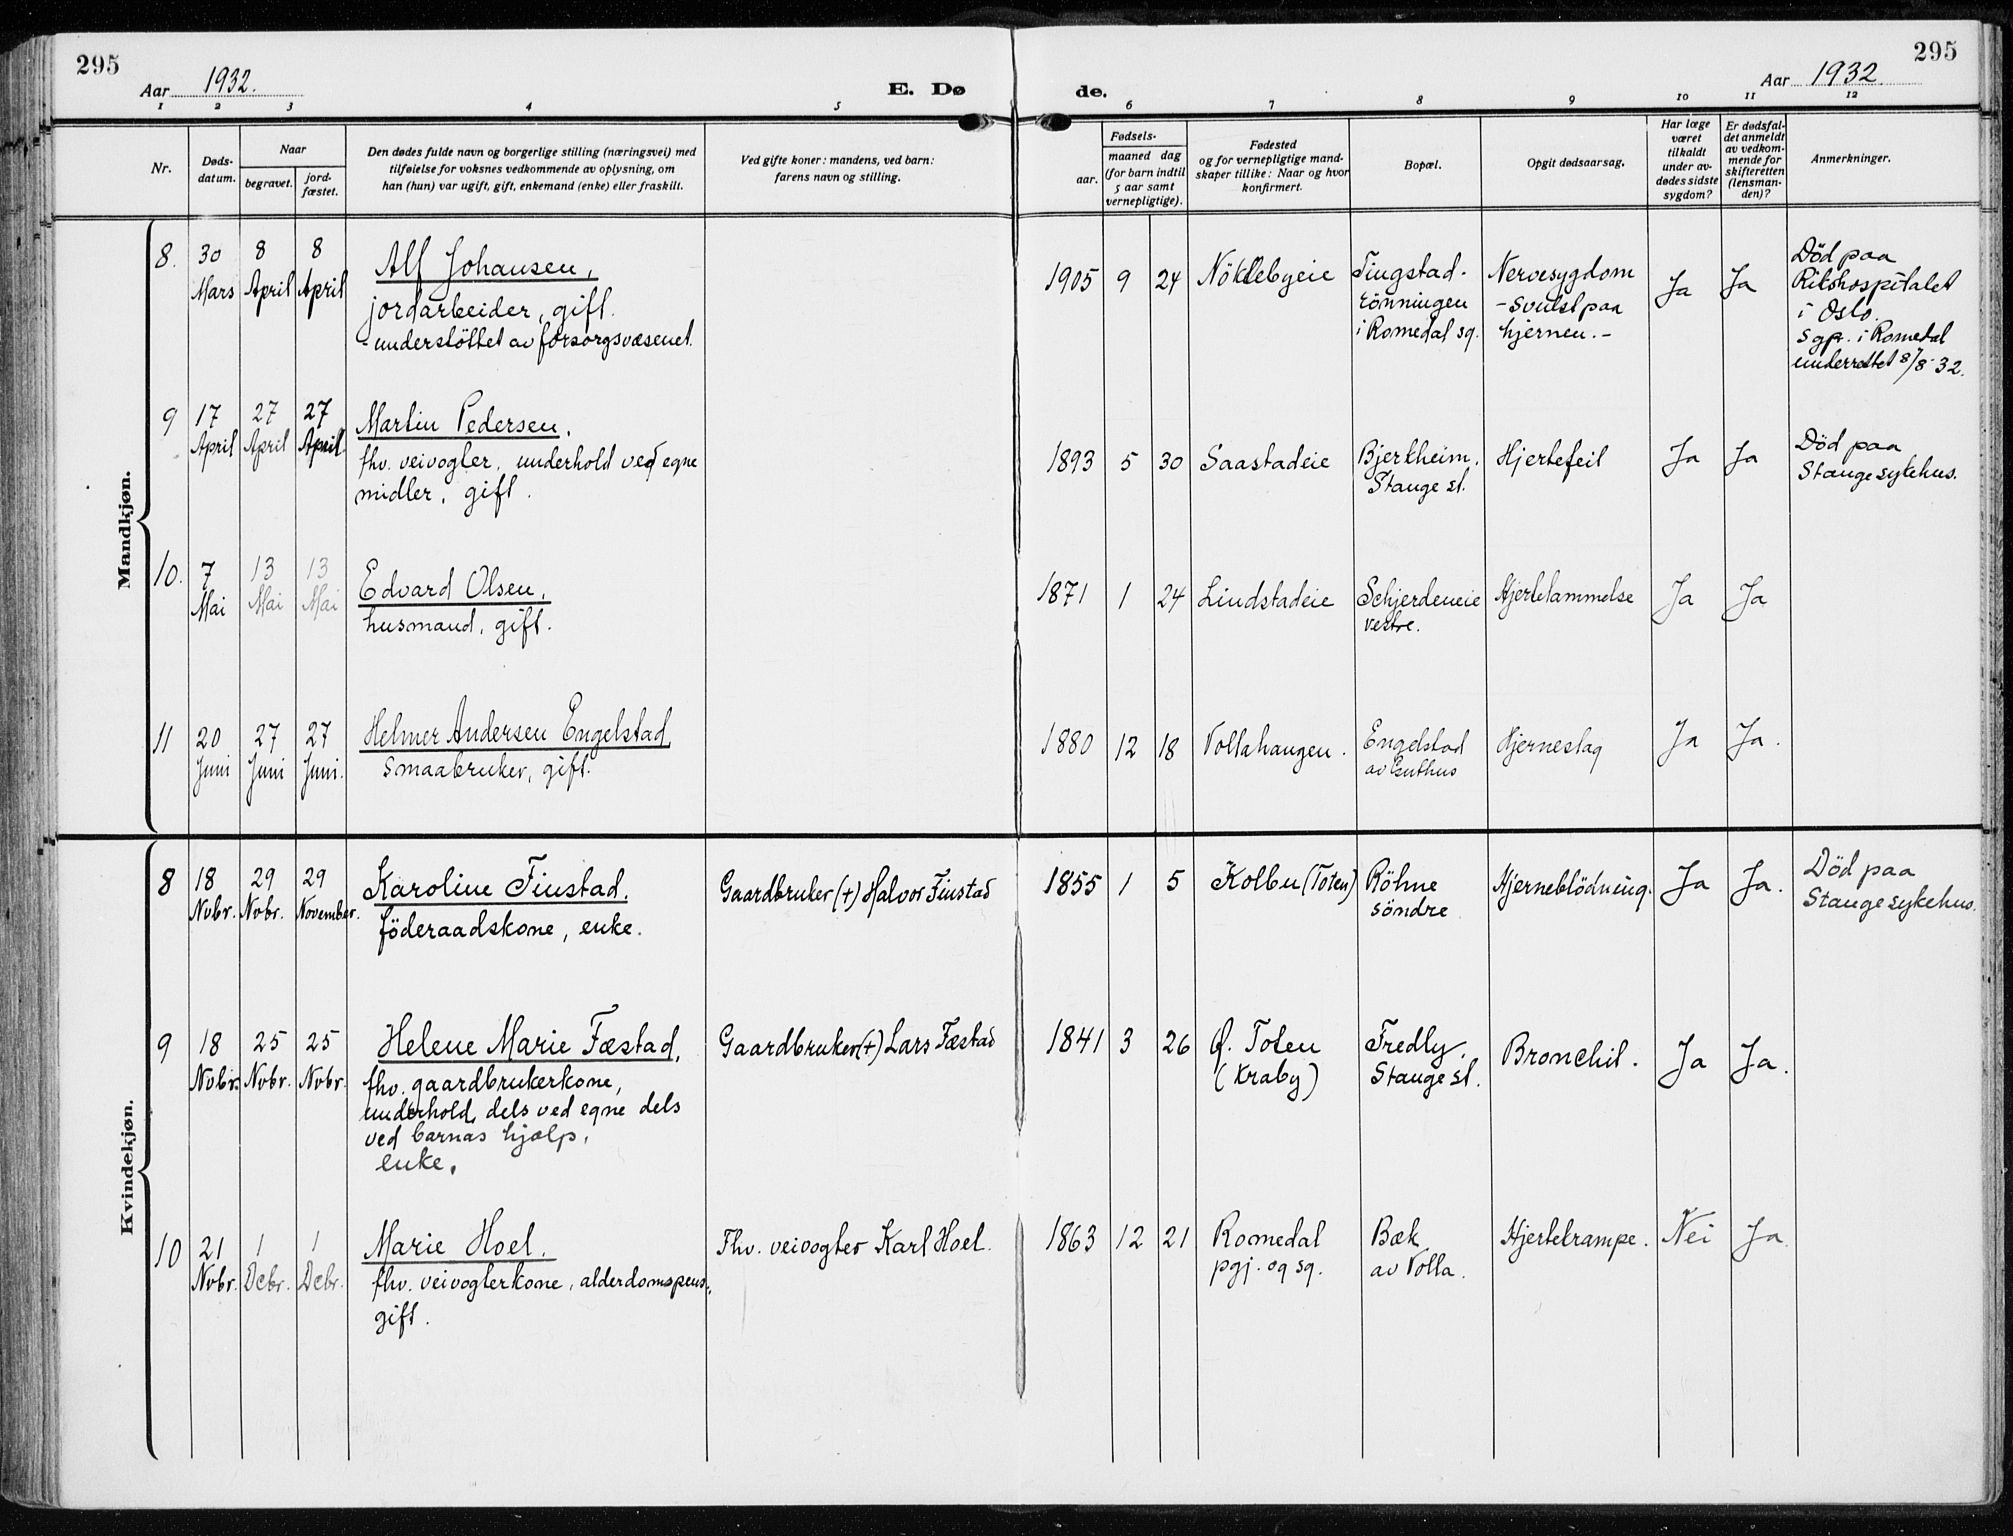 295
295
Aar 1932.
E. Dø
de.
Aar 1932
1 2 3 4 5 6 7 8 9 10 11 12
Nr.
Døds-
datum.
Naar
begravet.
jord-
fæstet.
Den dødes fulde navn og borgerlige stilling (næringsvei) med
tilføielse for voksnes vedkommende av oplysning, om
han (hun) var ugift, gift, enkemand (enke) eller fraskilt.
Ved gifte koner: mandens, ved barn:
farens navn og stilling.
Fødsels-
aar.
maaned dag
(for barn indtil
5 aar samt
vernepligtige).
Fødested
og for vernepligtige mand-
skaper tillike: Naar og hvor
konfirmert.
Bopæl.
Opgit dødsaarsag.
Har læge
været
tilkaldt
under av-
dødes sidste
sygdom?
Er dødsfal-
det anmeldt
av vedkom-
mende for
skifteretten
(lensman-
den)?
Anmerkninger.
Mandkjøn.
8.
30
Mars
8
April
8
April
Alf Johansen,
jordarbeider, gift.
- understöttet av forsorgsvæsenet.
1905 9 24
Nöklebyeie
Tingstad-
rönningen
i Romedal sg.
Nervesygdom
- svulst paa
hjernen. -
Ja
Ja
Död paa
Rikshospitalet
i Oslo.
Sgpr. i Romedal
underrettet 8/8-32.
9
17
April
27
April
27
April.
Martin Pedersen,
fhv. veivogter, underhold ved egne
midler, gift.
1893 5 30
Saastadeie
Bjerkheim,
Stange st.
Hjertefeil
Ja
Ja
Död paa
Stange sykehus.
10.
7
Mai
13
Mai
13
Mai
Edvard Olsen,
husmand, gift.
1871 1 24
Lindstadeie
Schjerdeneie
vestre.
Hjertelammelse
Ja
Ja
11
20
Juni
27
Juni
27
Juni.
Helmer Andersen Engelstad,
smaabruker, gift.
1880 12 18
Vollahaugen.
Engelstad
av Guthus
Hjerneslag
Ja
Ja.
Kvindekjøn.
8
18
Nvbr.
29
Nvbr.
29
November.
Karoline Finstad.
föderaadskone, enke.
Gaardbruker (+) Halvor Finstad
1855 1 5
Kolbu (Toten)
Röhne
söndre
Hjerneblödning.
Ja
Ja.
Död paa
Stange sykehus.
9
18
Nvbr.
25
Nvbr.
25
Nvbr.
Helene Marie Fæstad,
fhv. gaardbrukerkone,
underhold dels ved egne dels
ved barnas hjælp,
enke.
Gaardbruker (+) Lars Fæstad
1841 3 26
Ø. Toten
(Kraby)
Fredly,
Stange st.
Bronchit.
Ja
Ja.
10
21
Nvbr.
1
Debr.
1
Debr.
Marie Hoel.
fhv. veivogterkone, alderdomspens.,
gift.
Fhv. veivogter Karl Hoel.
1863 12 21
Romedal
pgj. og sg.
Bæk
av Volla.
Hjertekrampe.
Nei
Ja.